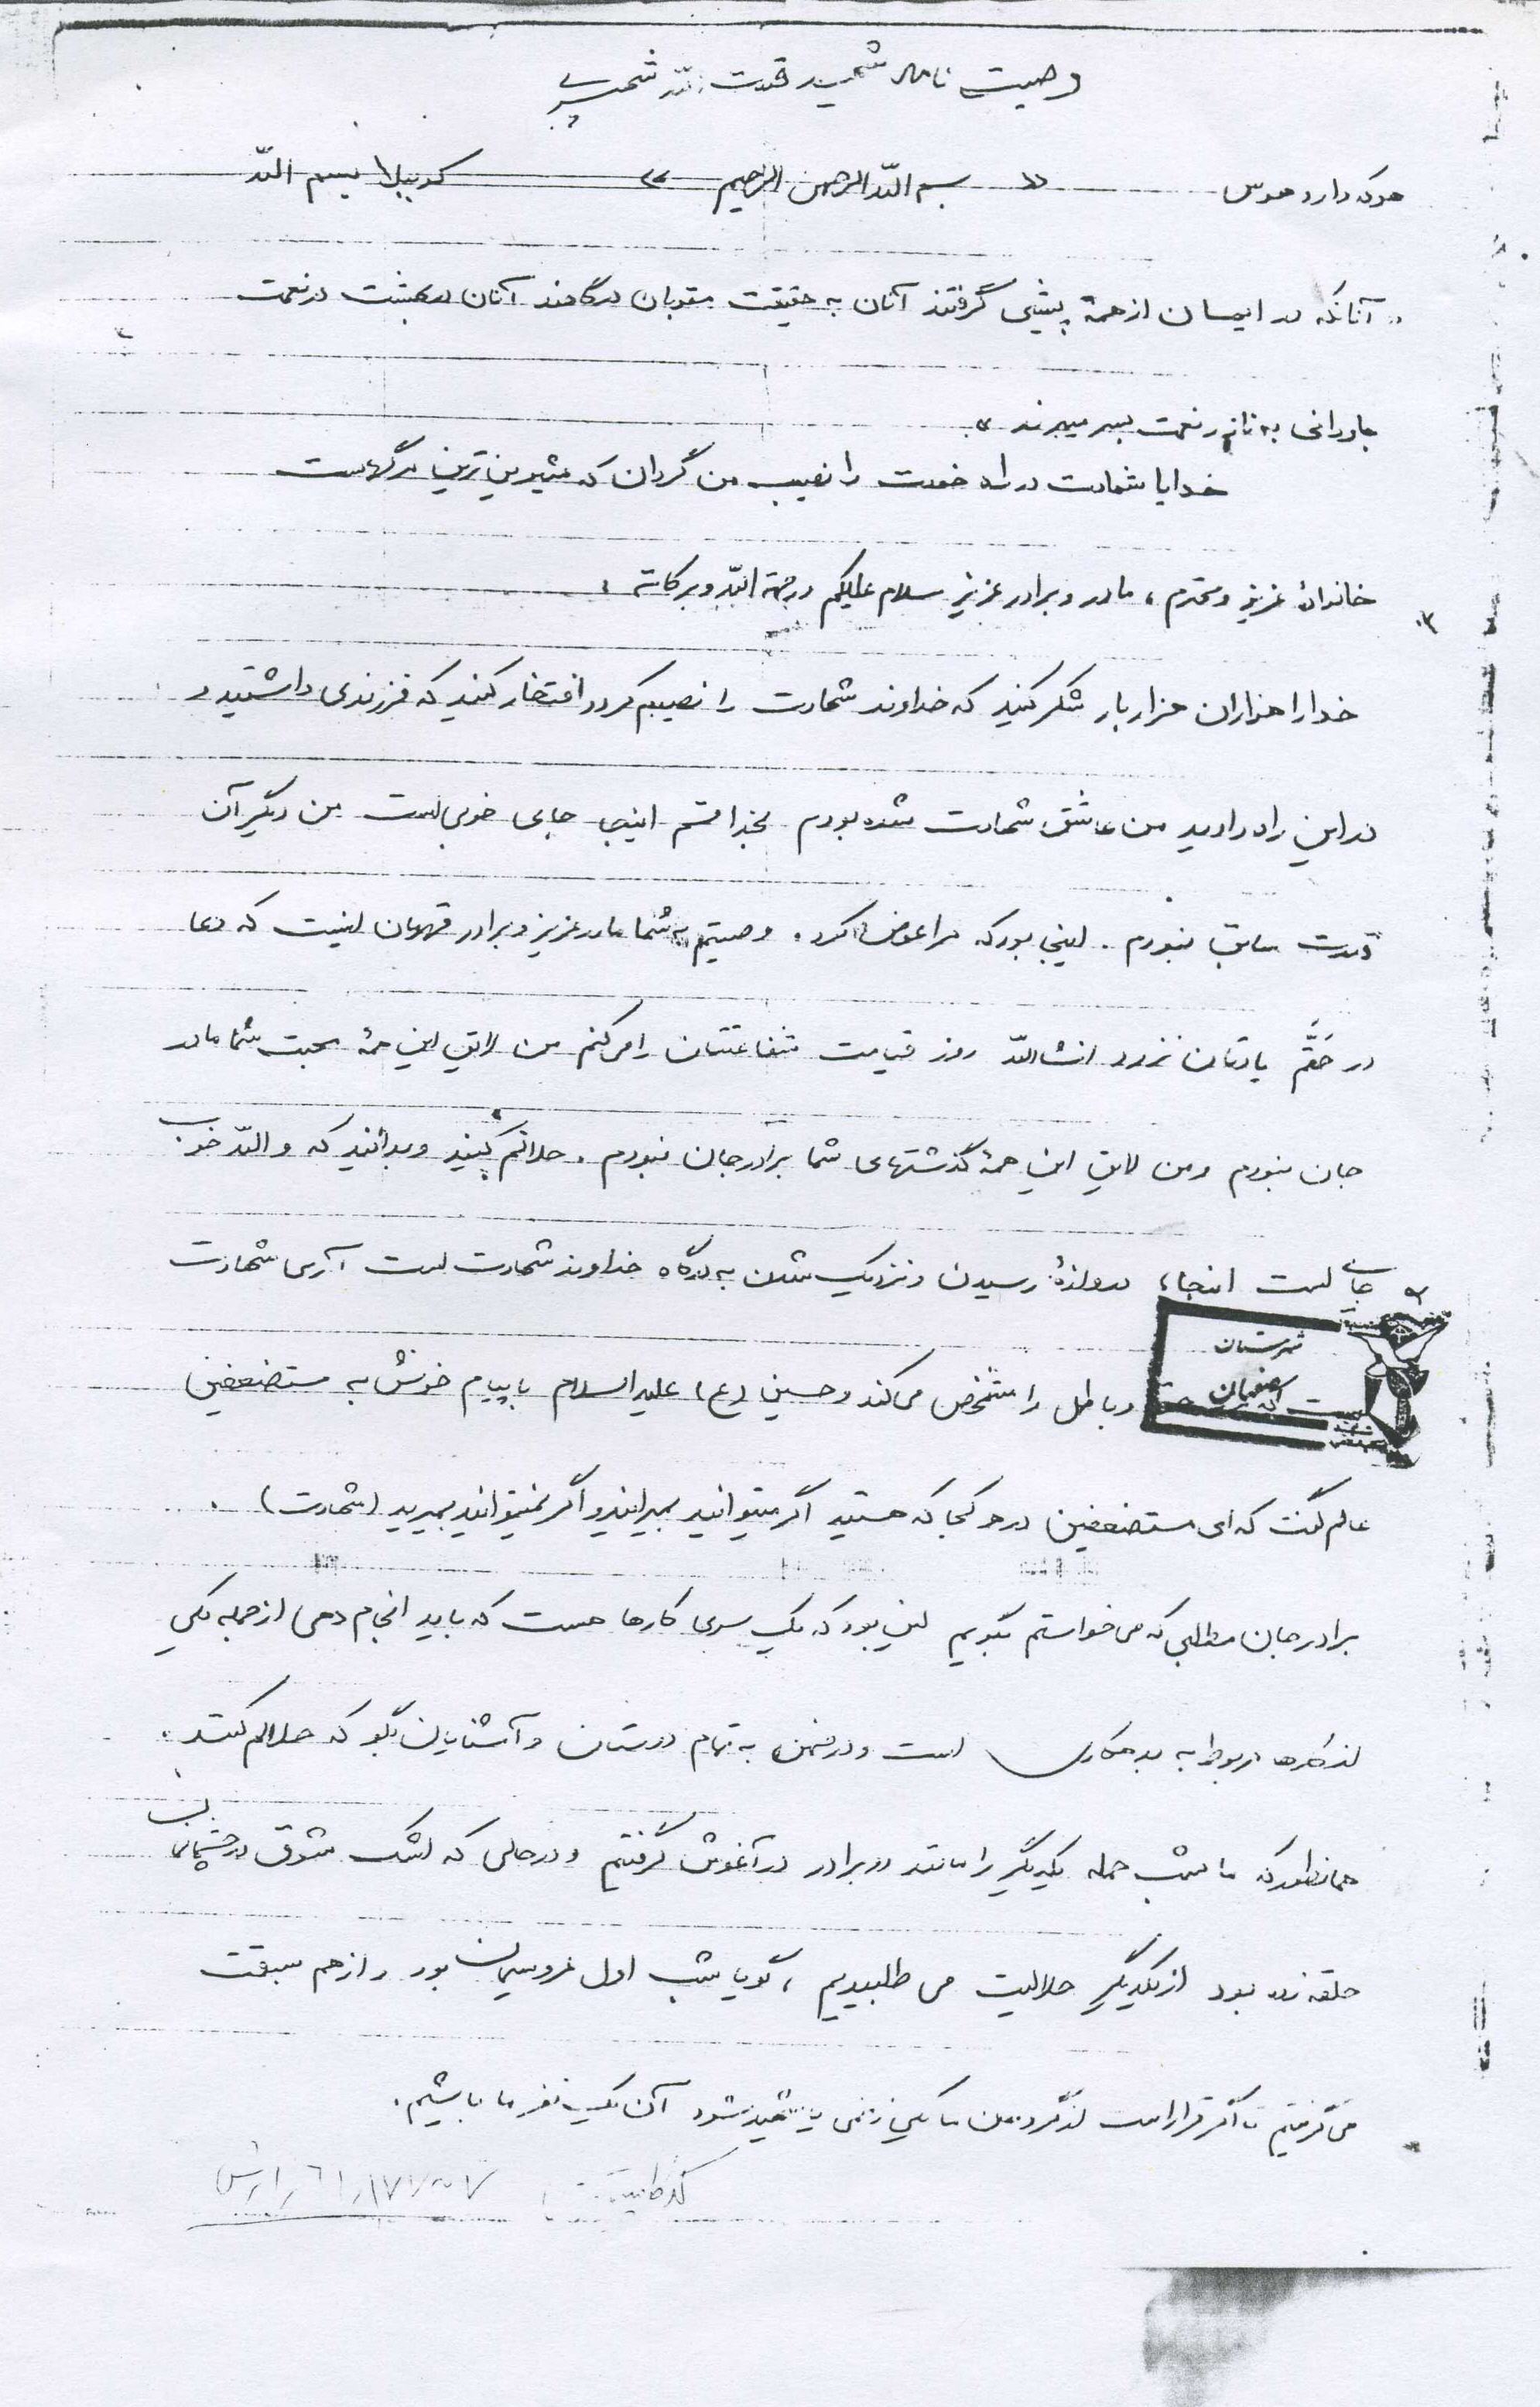 وصیت نامه شهید قدرت الله شمسی
هرکه دارد هوس « بسم الله الرحمن الرحیم » کرببلا بسم الله
" آنانکه در ایمان از همهٔ پیشی گرفتند آنان به حقیقت مقربان درگاهند آنان در بهشت در نعمت
جاودانی به ناز و نعمت بسر میبرند "
خدایا شهادت در راه خودت را نصیب من گردان که شیرین ترین مرگهاست
خانوادهٔ عزیز و محترم ، مادر و برادر عزیز سلام علیکم و رحمة الله و برکاته :
خدا را هزاران هزار بار شکر کنید که خداوند شهادت را نصیبم کرد و افتخار کنید که فرزندی داشتید و
در این راه دادید من عاشق شهادت شده بودم بخدا قسم اینجا جای خوبی است من دیگر آن
قدرت سابق نبودم . اینجا بود که مرا عوض کرد . وصیتم به شما مادر عزیز و برادر قهرمان اینست که دعا
در حَقَّم یادتان نرود انشاالله روز قیامت شفاعتتان را می کنم من لایق این همهٔ محبت شما مادر
جان نبودم و من لایق این همهٔ گذشتهای شما برادر جان نبودم . حلالم کنید و بدانید که والله خوب
جایی است اینجا ، دروازهٔ رسیدن و نزدیک شدن به درگاه خداوند شهادت است آری شهادت
است که حق و باطل را مشخص می کند و حسین (ع) علیه السلام با پیام خونش به مستضعفین
شهرستان
اصفهان
عالم گفت که ای مستضعفین در هر کجا که هستید اگر میتوانید بمیرانید و اگر نمیتوانید بمیرید (شهادت) .
برادر جان مطالبی که می خواستم بگویم این بود که یک سری کارها هست که باید انجام دهی از جمله یکی
از کارها مربوط به بدهکاری است و در ضمن به تمام دوستان و آشنایان بگو که حلالم کنند .
همانطور که ما شب حمله یکدیگر را مانند دو برادر در آغوش گرفتیم و در حالی که اشک شوق در چشمانمان
حلقه زده بود از یکدیگر حلالیت می طلبیدیم ، گویا شب اول عروسیمان بود و از هم سبقت
می گرفتیم تا اگر قرار است از گردان ما یکی زخمی یا شهید شود آن یک نفر ما باشیم .